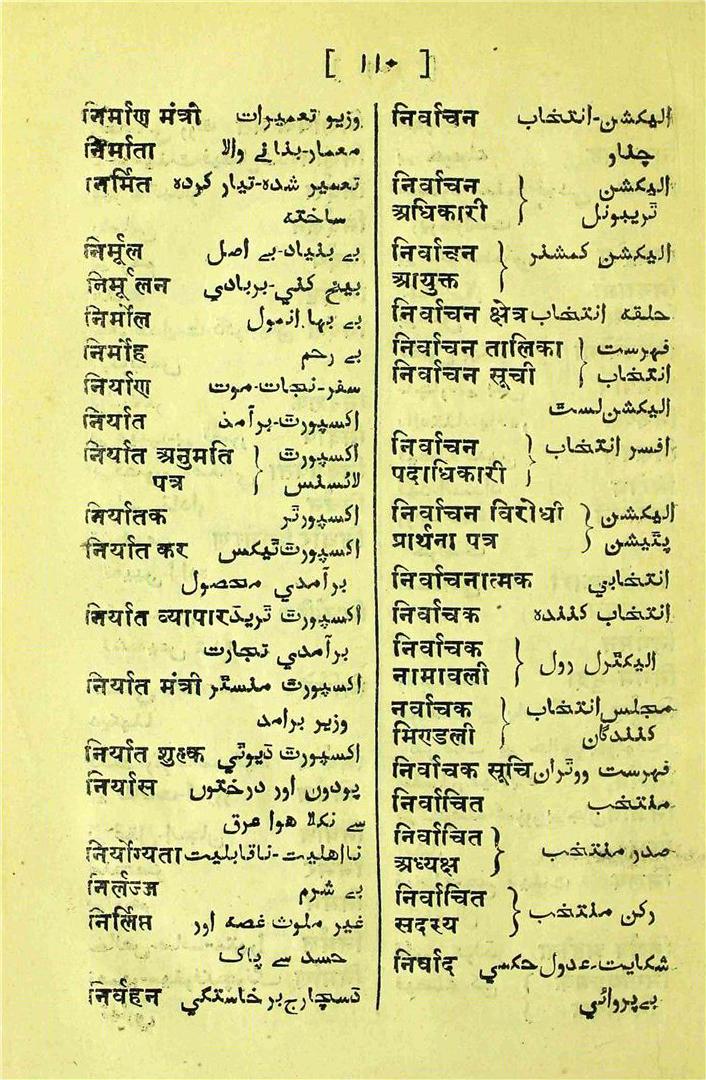 [ ١١٠ ]
निर्माण मंत्री وزير تعميرات
निर्माता معمار-بنانے والا
निर्मित تعمير شده-تيار کرده
ساخته
निर्मूल بے بنياد-بے اصل
निर्मूलन بيخ کني-بربادي
निर्मोल بے بہا۔انمول
निर्मोह بے رحم
निर्याण سفر-نجات-موت
निर्यात اکسپورٹ-برآمد
निर्यात अनुमति } اکسپورٹ
पत्र لائسنس
निर्यातक اکسپورٹر
निर्यात कर اکسپورٹ ٹيکس
برآمدي محصول
निर्यात व्यापार اکسپورٹ ٹريڈ
برآمدي تجارت
निर्यात मंत्री اکسپورٹ منسٹر
وزير برامد
निर्यात शुल्क اکسپورٹ ڈيوٹي
निर्यास پودوں اور درختوں
سے نکلا ہوا عرق
निर्योग्यता نااہليت-ناقابليت
निर्लज्ज بے شرم
निर्लिप्त غير ملوث غصه اور
حسد سے پاک
निर्वहन ڈسچارج-برخاستگي
निर्वाचन اليکشن-انتخاب
چناو
निर्वाचन } اليکشن
अधिकारी ٹريبونل
निर्वाचन } اليکشن کمشنر
आयुक्त
निर्वाचन क्षेत्र حلقه انتخاب
निर्वाचन तालिका } فہرست
निर्वाचन सूची انتخاب
اليکشن لسٹ
निर्वाचन } افسر انتخاب
पदाधिकारी
निर्वाचन विरोधी } اليکشن
प्रार्थना पत्र پٹيشن
निर्वाचनात्मक انتخابي
निर्वाचक انتخاب کننده
निर्वाचक } اليکٹرل رول
नामावली
नर्वाचक } مجلس انتخاب
मिण्डली کنندگان
निर्वाचक सूचि فہرست ووٹران
निर्वाचित منتخب
निर्वाचित } صدر منتخب
अध्यक्ष
निर्वाचित } رکن منتخب
सदस्य
निर्षाद شکايت-عدول حکمي
بےپروائي